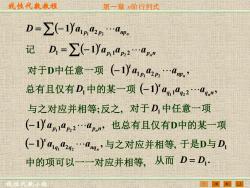 线性代数教程 第一章 n阶行列式
D = ∑(-1)^t a_{1p_1} a_{2p_2} ⋯ a_{np_n}
记 D_1 = ∑(-1)^t a_{p_1 1} a_{p_2 2} ⋯ a_{p_n n}
对于D中任意一项 (-1)^t a_{1p_1} a_{2p_2} ⋯ a_{np_n},
总有且仅有 D_1 中的某一项 (-1)^s a_{q_1 1} a_{q_2 2} ⋯ a_{q_n n},
与之对应并相等;反之, 对于 D_1 中任意一项
(-1)^t a_{p_1 1} a_{p_2 2} ⋯ a_{p_n n}, 也总有且仅有D中的某一项
(-1)^s a_{1q_1} a_{2q_2} ⋯ a_{nq_n}, 与之对应并相等, 于是D与 D_1
中的项可以一一对应并相等, 从而 D = D_1.